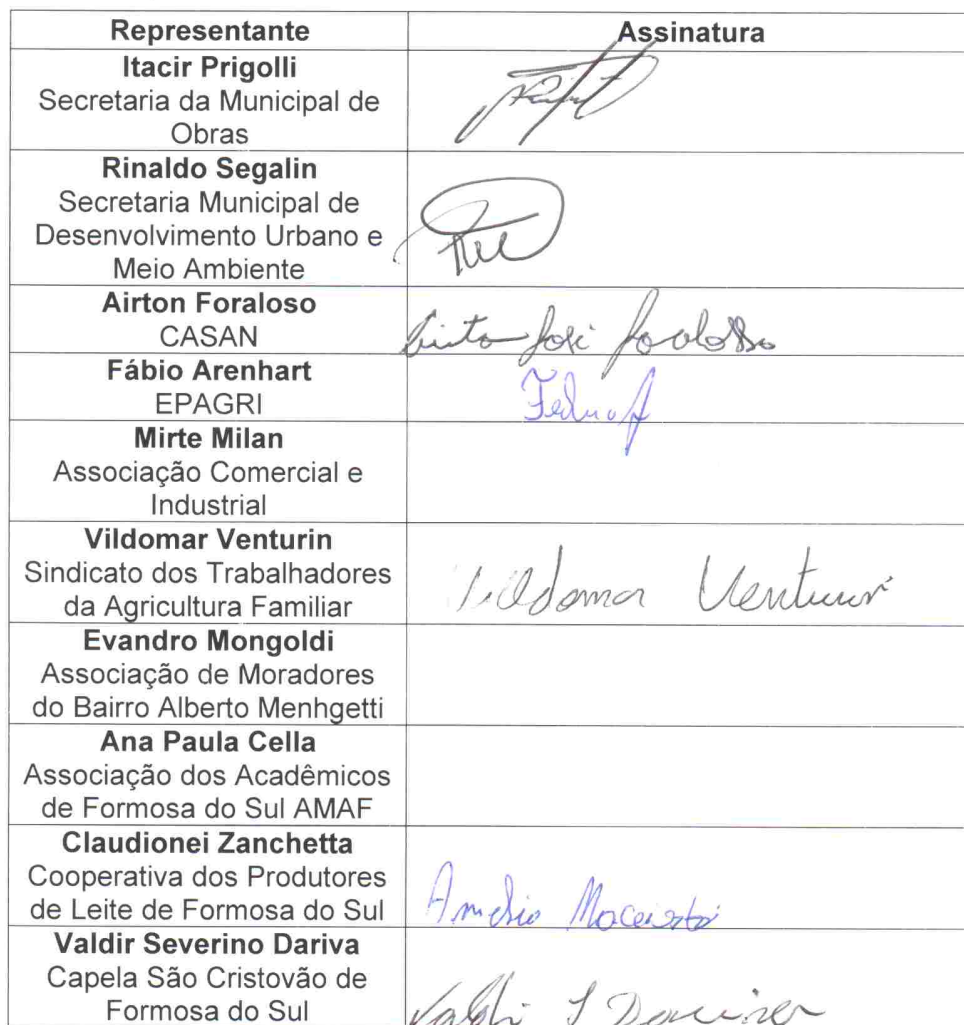 Representante Assinatura
Itacir Prigolli
Secretaria da Municipal de
Obras
Rinaldo Segalin
Secretaria Municipal de
Desenvolvimento Urbano e
Meio Ambiente
Airton Foraloso
CASAN
Fábio Arenhart
EPAGRI
Mirte Milan
Associação Comercial e
Industrial
Vildomar Venturin
Sindicato dos Trabalhadores
da Agricultura Familiar
Evandro Mongoldi
Associação de Moradores
do Bairro Alberto Menhgetti
Ana Paula Cella
Associação dos Acadêmicos
de Formosa do Sul AMAF
Claudionei Zanchetta
Cooperativa dos Produtores
de Leite de Formosa do Sul
Valdir Severino Dariva
Capela São Cristovão de
Formosa do Sul